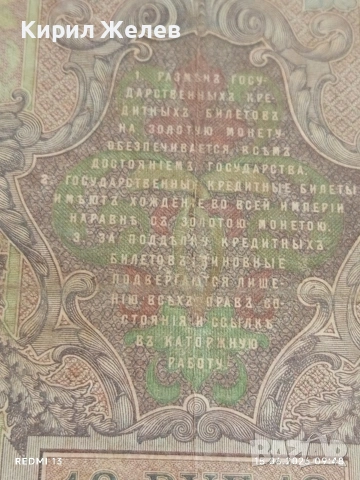 Кирил Желев
1. РАЗМѢНЪ ГОСУ-
ДАРСТВЕННЫХЪ КРЕ-
ДИТНЫХЪ БИЛЕТОВЪ
НА ЗОЛОТУЮ МОНЕТУ
ОБЕЗПЕЧИВАЕТСЯ ВСѢМЪ
ДОСТОЯНІЕМЪ ГОСУДАРСТВА.
2. ГОСУДАРСТВЕННЫЕ КРЕДИТНЫЕ БИЛЕТЫ
ИМѢЮТЪ ХОЖДЕНІЕ ВО ВСЕЙ ИМПЕРІИ
НАРАВНѢ СЪ ЗОЛОТОЮ МОНЕТОЮ.
3. ЗА ПОДДѢЛКУ КРЕДИТНЫХЪ
БИЛЕТОВЪ ВИНОВНЫЕ
ПОДВЕРГАЮТСЯ ЛИШЕ-
НІЮ ВСѢХЪ ПРАВЪ СО-
СТОЯНІЯ И ССЫЛКѢ
ВЪ КАТОРЖНУЮ
РАБОТУ.
REDMI 13
bazar